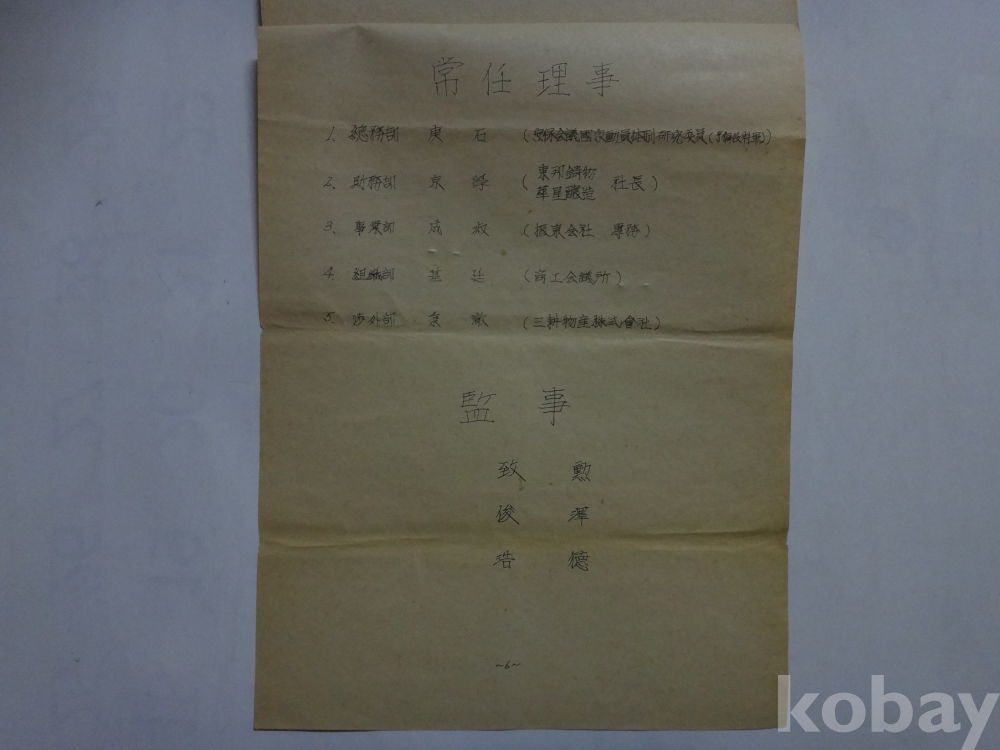 常任理事
1. 總務部 庚石 (安保会議国家動員体制研究委員(予備役将軍))
2. 財務部 京 (東邦鑄物 華星釀造 社長)
3. 事業部 成淑 (振東会社 專務)
4. 組織部 基廷 (商工会議所)
5. 涉外部 (三耕物産株式會社)
監事
致勲
俊澤
浩德
~6~
kobay